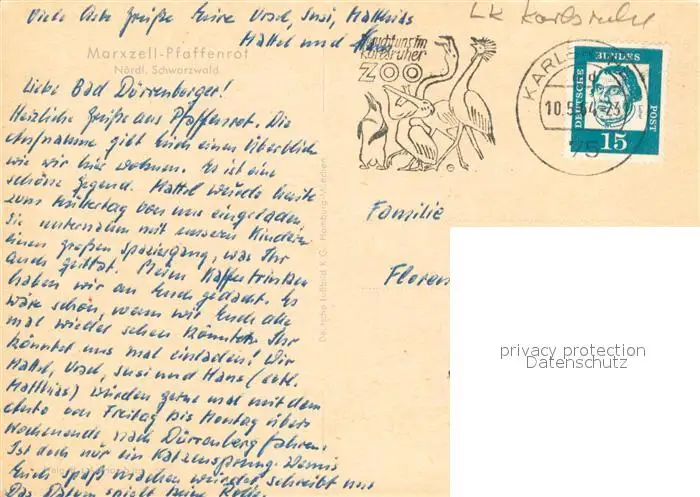 Viele liebe Grüße Eure Ursel, Susi, Matthias
Mattel und Hans
LK Karlsruhe
Marxzell-Pfaffenrot
Nördl. Schwarzwald
Besucht uns im
Karlsruher
ZOO
KARLSRUHE
10.5.64-23
75
DEUTSCHE BUNDESPOST
15
Liebe Bad Dürrenberger!
Herzliche Grüße aus Pfaffenrot. Die
Aufnahme gibt Euch einen Überblick
wie wir hier wohnen. Es ist eine
schöne Gegend. Mattel wurde heute
zum Muttertag von uns eingeladen.
Sie unternahm mit unseren Kindern
einen großen Spaziergang, was Ihr
auch gefällt. Beim Kaffeetrinken
haben wir an Euch gedacht. Es
wäre schön, wenn wir Euch alle
mal wieder sehen könnten. Ihr
könntet uns mal einladen! Wir
Mattel, Ursel, Susi und Hans (evtl.
Matthias) würden gerne mal mit dem
Auto von Freitag bis Montag übers
Wochenende nach Dürrenberg fahren.
Ist doch nur ein Katzensprung. Wenns
Euch Spaß machen würde, schreibt uns
Das Datum spielt keine Rolle.
Deutsche Luftbild K. G. Hamburg-München
Familie
Floren
privacy protection
Datenschutz